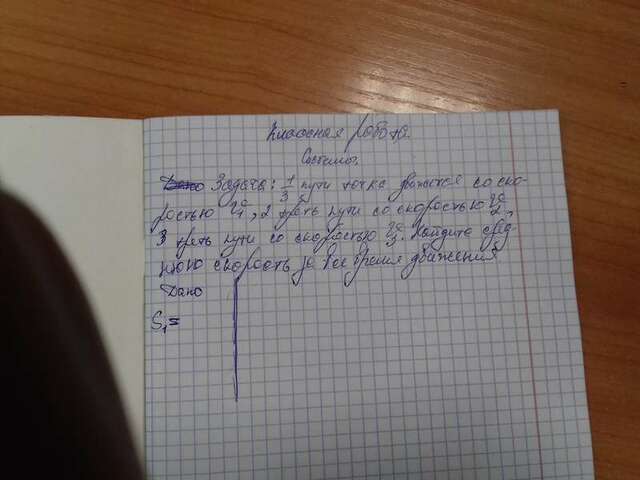 Классная работа.
Дано Задача: 1/3 пути точка движется со ско-
ростью V1, 2 треть пути со скоростью V2
3 треть пути со скоростью V3. Найдите сред-
нюю скорость за все время движения
Дано
S1=